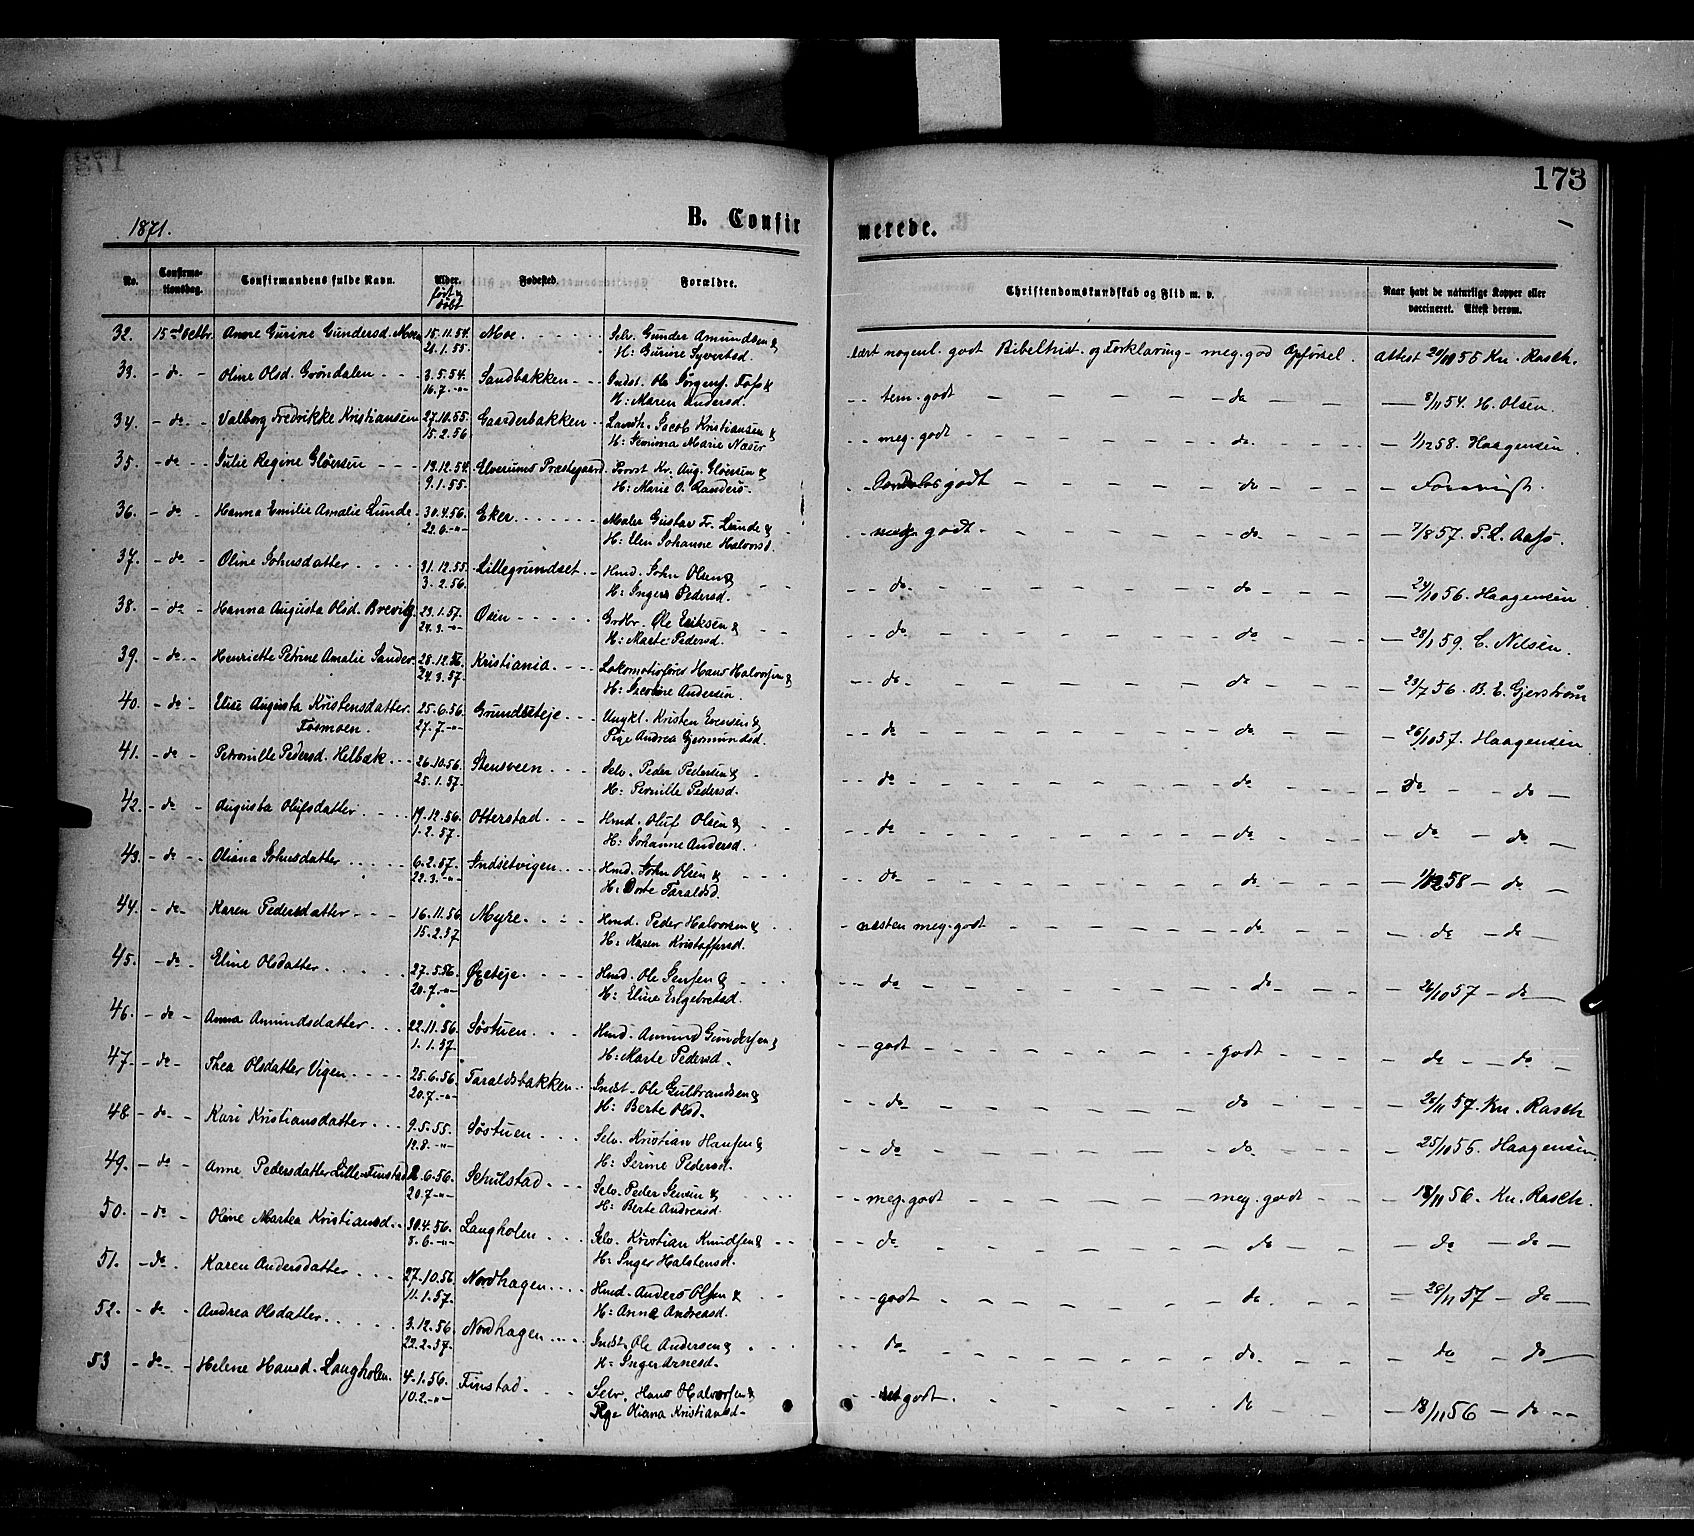 173
1871.
B. Confirmerede.
No. Confirmationsdag. Confirmandens fulde Navn. Alder. født & døbt Fødested. Forældre. Christendomskundskab og Flid m. v. Naar havt de naturlige Kopper eller vaccineret. Attest derom.
32. 15de Octbr. Anne Gurine Gundersd. Moe 15.11.54. Moe Selv. Gunder Amundsen & lært nogenl. godt Bibelhist. og Forklaring - meg. god Opførsel. Attest 20/10 55 Kn. Rasch.
21.1.55. H: Gurine Syversd.
33. - do - Oline Olsd. Grøndalen 3.5.54. Sandbakken Indst. Ole Jørgens. Fos & tem. godt do 8/11 54. H. Olsen.
16.7. -"- H: Maren Andersd.
34. - do - Valborg Fredrikke Kristiansen 27.10.55. Gaarderbakken Landh. Jacob Kristiansen & meg. godt do 1/12 58. Haagensen.
15.2.56. H: Gemima Marie Næser
35. - do - Julie Regine Gløersen 19.12.54. Elverums Præstegaard Provst Kr. Aug. Gløersen & godt do
9.1.55. H: Marie O. Randers.
36. - do - Hanna Emilie Amalie Lunde 30.4.56. Eker Maler Gustav Fr. Lunde & meg. godt do 7/8 57. P. L. Aass.
22.6. -"- H: Elen Johanne Halvorsd.
37. - do - Oline Johnsdatter 31.12.55. Lillegrundset Hmd. John Olsen & do do 24/10 56. Haagensen
3.2.56. H: Inger Pedersd.
38. - do - Hanna Augusta Olsd. Brevig 23.1.57. Øien Grdbr. Ole Eriksen & do do 28/1 59. C. Nilsen.
24.3. -"- H: Marte Pedersd.
39. - do - Henriette Petrine Amalie Sander 28.12.56. Kristiania Lokomotivfører Hans Halvorsen & do do 23/7 56. B. E. Gjerstrøm
24.3.57. H: Andersen
40. - do - Elise Augusta Kristensdatter 25.6.56. Grundsetteje Ungkl. Kristen Evensen & do do 26/10 57. Haagensen
Tormoen. 27.7. -"- Pige Andrea Gjermundsd.
41. - do - Petronille Pedersd. Helbæk 26.10.56. Stensveen Selv. Peder Pedersen & do do do do
25.1.57. H: Pernille Pedersd.
42. - do - Augusta Olufsdatter 19.12.56. Otterstad Hmd. Oluf Olsen & do do do do
1.2.57. H: Johanne Andersd.
43. - do - Oliana Johnsdatter 6.2.57. Indsetvigen Hmd. John Olsen & do do 1/12 58 - do
22.3. -"- H: Dorte Taraldsd.
44. - do - Karen Pedersdatter 16.11.56. Myre Hmd. Peder Halvorsen & næsten meg. godt do do do
15.2.57 H: Karen Kristoffersd.
45. - do - Eline Olsdatter 27.5.56. Øxeteje Hmd. Ole Jensen & do do 26/10 57 - do
20.7. -"- H: Eline Engebretsd.
46. - do - Anna Amundsdatter 22.11.56. Søstuen Hmd. Amund Gundersen & godt godt do do
1.1.57. H: Marte Pedersd.
47. - do - Thea Olsdatter Vigen 25.6.56. Taraldsbakken Indst. Ole Gulbrandsen & do do 20/11 57. Kn. Rasch
20.7. -"- H: Berte Olsd.
48. - do - Kari Kristiansdatter 9.5.55. Søstuen Selv. Kristian Hansen & do do 25/10 55 Haagensen.
12.8. -"- H: Serine Pedersd.
49. - do - Anne Pedersdatter Lille-Finstad 2.6.56. Schulstad Selv. Peder Jensen & meg. godt meg. godt 18/11 56. Kn. Rasch.
20.7. -"- H: Berte Andreasd.
50. - do - Oline Martea Kristiansd. 30.4.56. Langholen Selv. Kristian Knudsen & do do do do
8.6. -"- H: Inger Halstensd.
51. - do - Karen Andersdatter 27.10.56. Nordhagen Hmd. Anders Olsen & godt do 28/11 57 - do
11.1.57. H: Anne Andreasd.
52. - do - Andrea Olsdatter 3.12.56. Nordhagen Indst. Ole Andersen & do do do do
22.2.57. H: Inger Arnesd.
53 - do - Helene Hansd. Langholen 4.1.56. Finstad Selv. Hans Halvorsen & godt. do 18/11 56 - do
10.2. -"- Pige Oliana Kristiansd.